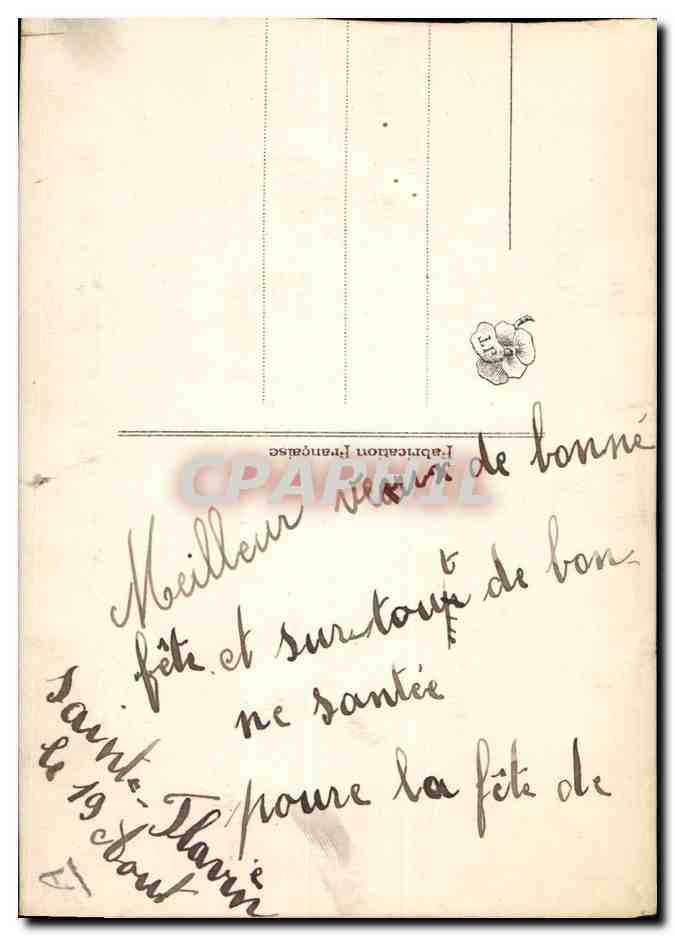 Fabrication Française
CPARHIL
Meilleur veaux de bonné
fête et sur tout de bon-
ne santée
poure la fête de
Sainte-Flavie
le 19 Aout